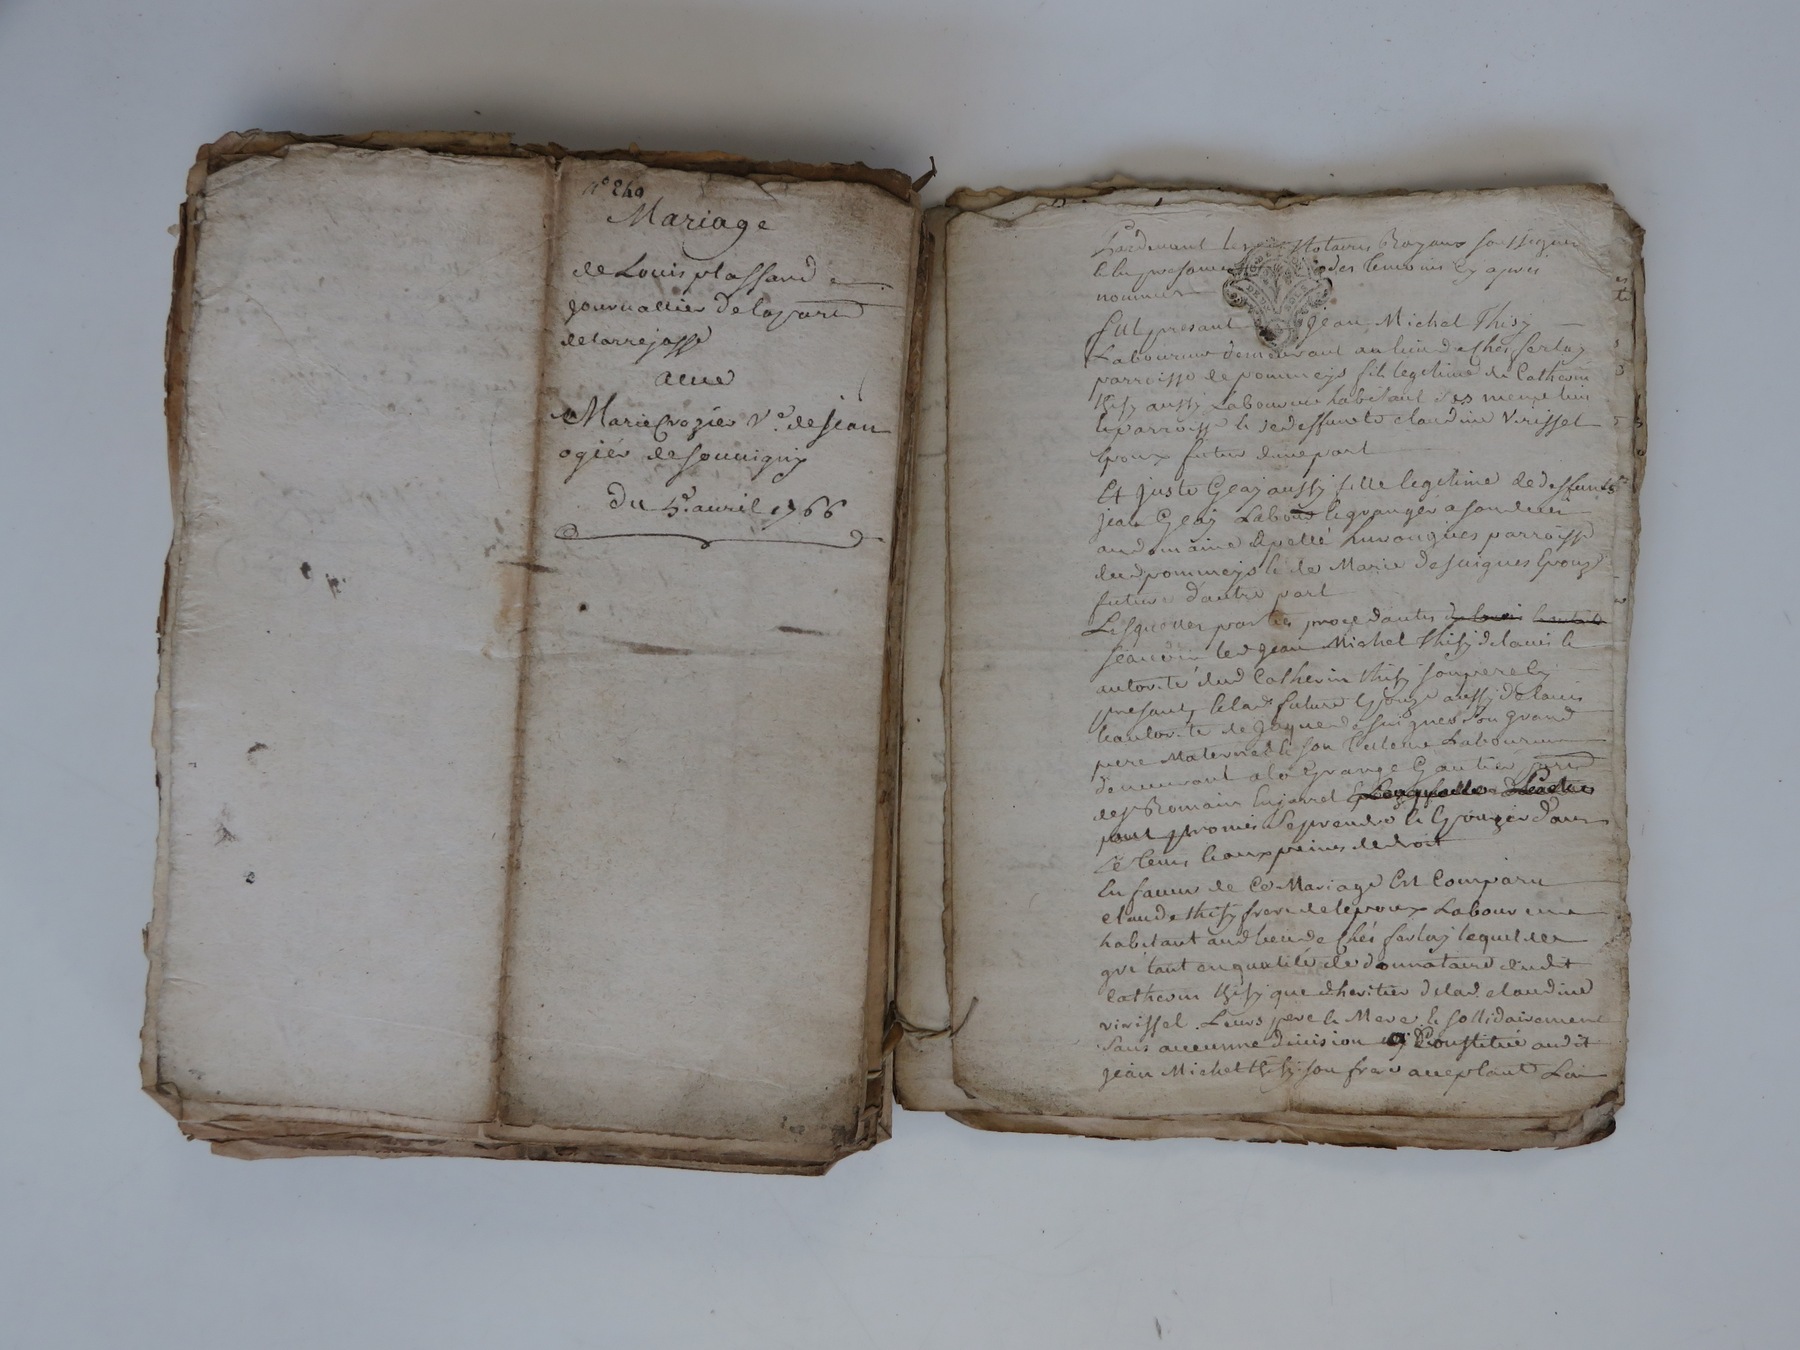 n° 240
Mariage
de Louis plassard
journallier de la par
de larrejasse
avec
Marie Crozier Ve. de jean
ogiér de souvigny
du 5e. avril 1766
Pardevant les Notaires Royaux soussignés
le lu presance des temoins cy apres
nommés
fut presant jean Michel Thisy
Laboureur demeurant au lieu de Chés ferlay
parroisse de pommeys fils legitime de Catherin
thisy aussy Laboureur habitant
parroisse & de deffunte claudine Virissel
Epoux futur d'une part
Et juste Geay aussy fille legitime de deffunts
jean Geay Labou granger a son deces
au domaine apellé parroisse
dud pommeys & de Marie desuignes Epouze
future d'autre part
Lesquelles parties procedantes
sçavoir led jean Michel thisy de lavis &
autorité dud Catherin thisy son pere cy
presant, & lad future Epouze aussy de lavis
& autorité de jaques desuignes son grand
pere Maternel Laboureur
demeurant a la Grange Gautier
de st Romain en jarret
ont promis se prendre & Epouzer dans
le tems & aux peines de droit
En faveur de Ce Mariage Est Comparu
claude thisy frere de lepoux Laboureur
habitant aud lieu de Chés ferlay lequel de
gré tant en qualité de donnataire dudit
Catherin thisy que d'heritier de lad. claudine
virissel. Leurs pere & Mere & sollidairement
sans aucunne division a Constitué audit
jean Michel thisy son frere acceptant La